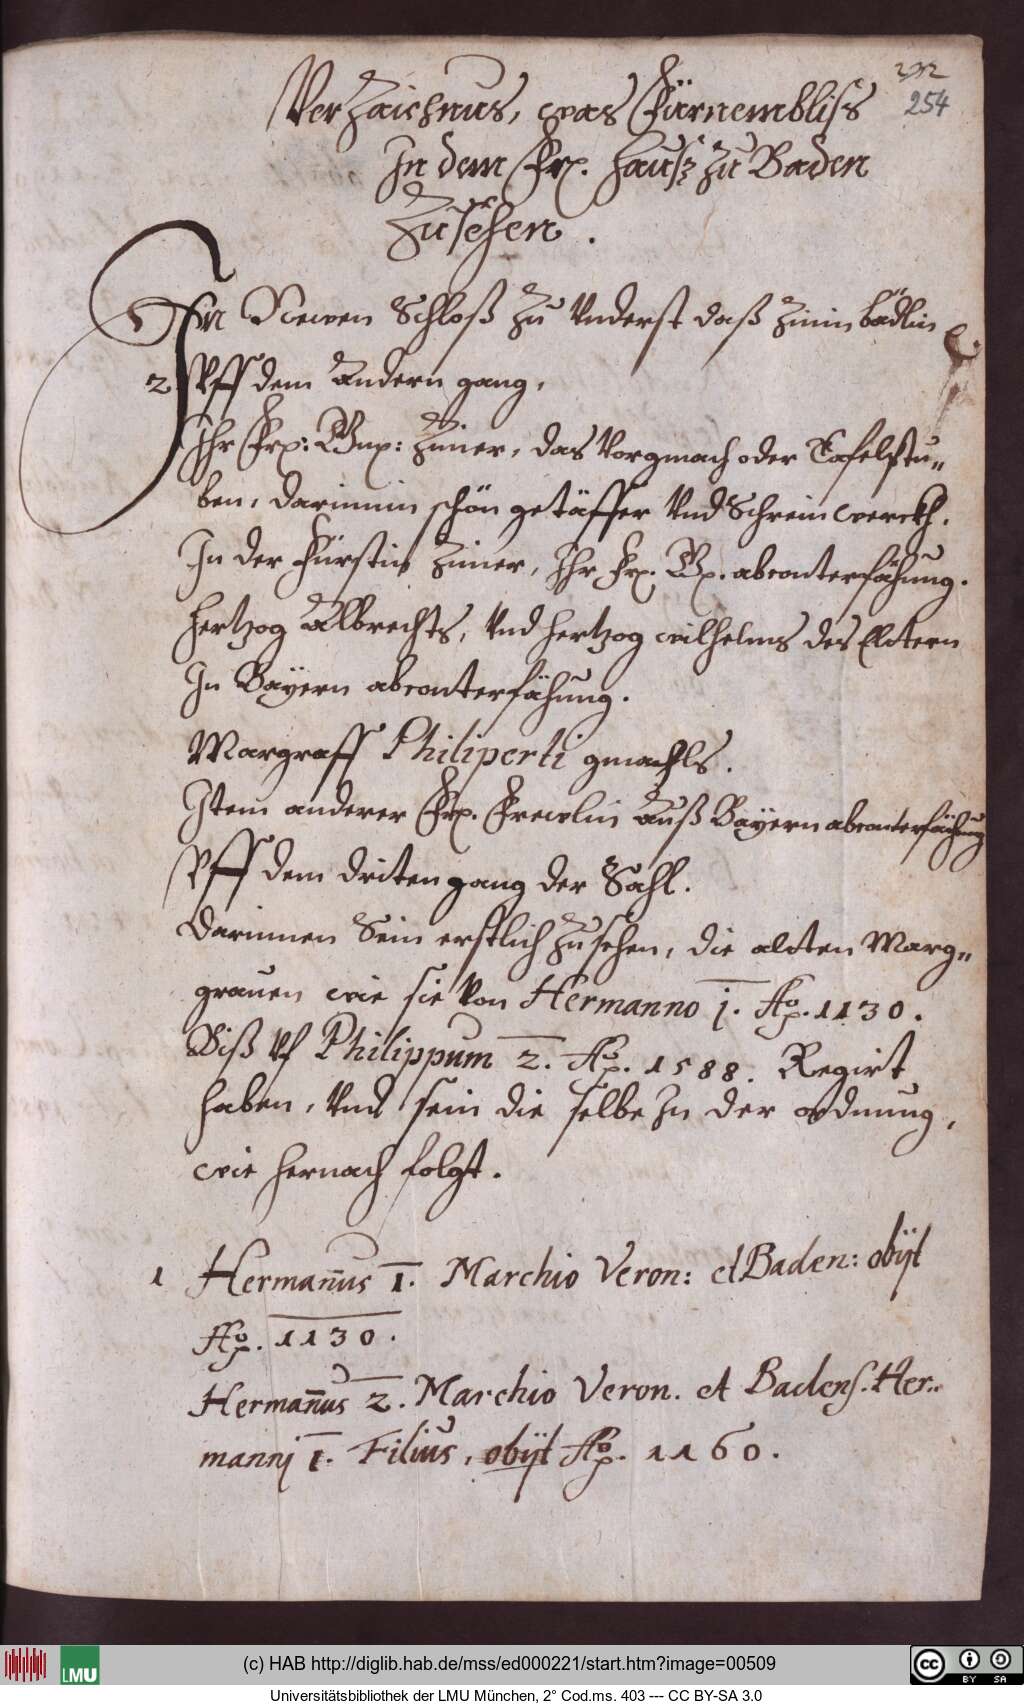 232
254
Verzaichnus, was Fürnembliss
In dem Frl. Hausz zu Baden
Zusehen.
Im Newen Schloß zu Vnderst daß Zinin bädlin
2 Vff dem Andern gang,
Ihr Frl: Gnl: Zimer, das Vorgmach oder Tafelstu-
ben, darinnin schön getäffer Vnd Schreinwerckh.
In der Fürstin Zimer, Ihr Frl. Gl. abconterfähung.
Hertzog Albrechts, Vnd Hertzog wilhelms des Eltern
In Bayern abconterfähung.
Margraff Philiperti gmachls.
Item anderer Frl. Frewlin Auß Bayern abconterfähung
Vff dem driten gang der Sahl.
Darinnen Sein erstlich Zusehen, die alten Marg-
grauen wie sie von Hermanno j. Ao. 1130.
Biß Vf Philippum 2. Ao. 1588. Regirt
haben, Vnd sein die selbe In der ordnung,
wie hernach folgt.
1 Hermanus I. Marchio Veron: et Baden: obijt
Ao. 1130.
Hermanus 2. Marchio Veron. et Badens. Her-
mannj I. Filius, obijt Ao. 1160.
LMU
(c) HAB http://diglib.hab.de/mss/ed000221/start.htm?image=00509
cc BY SA
Universitätsbibliothek der LMU München, 2° Cod.ms. 403 --- CC BY-SA 3.0